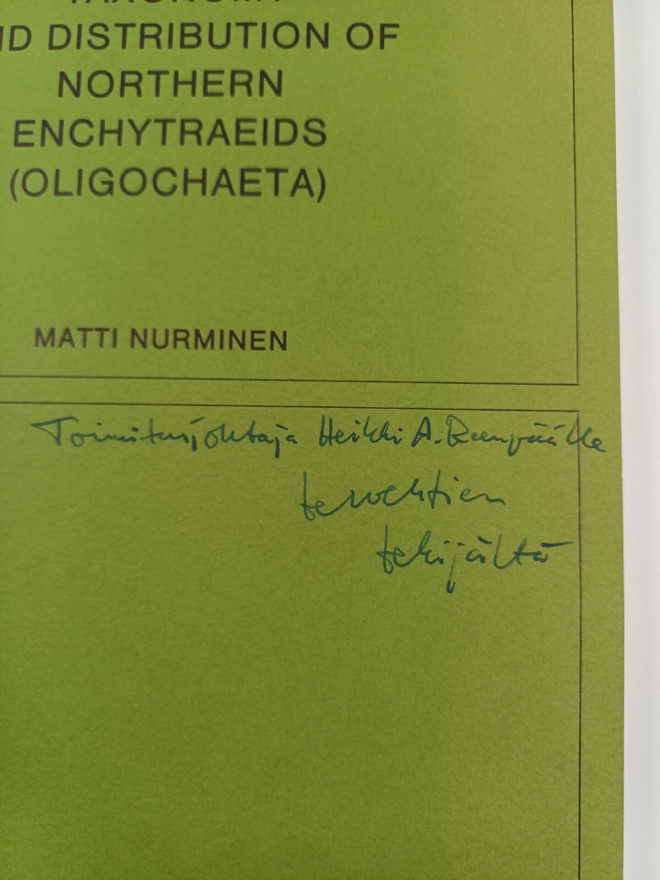 ND DISTRIBUTION OF
NORTHERN
ENCHYTRAEIDS
(OLIGOCHAETA)
MATTI NURMINEN
Toimitusjohtaja Heikki A. Reenpäälle
tervehtien
tekijältä